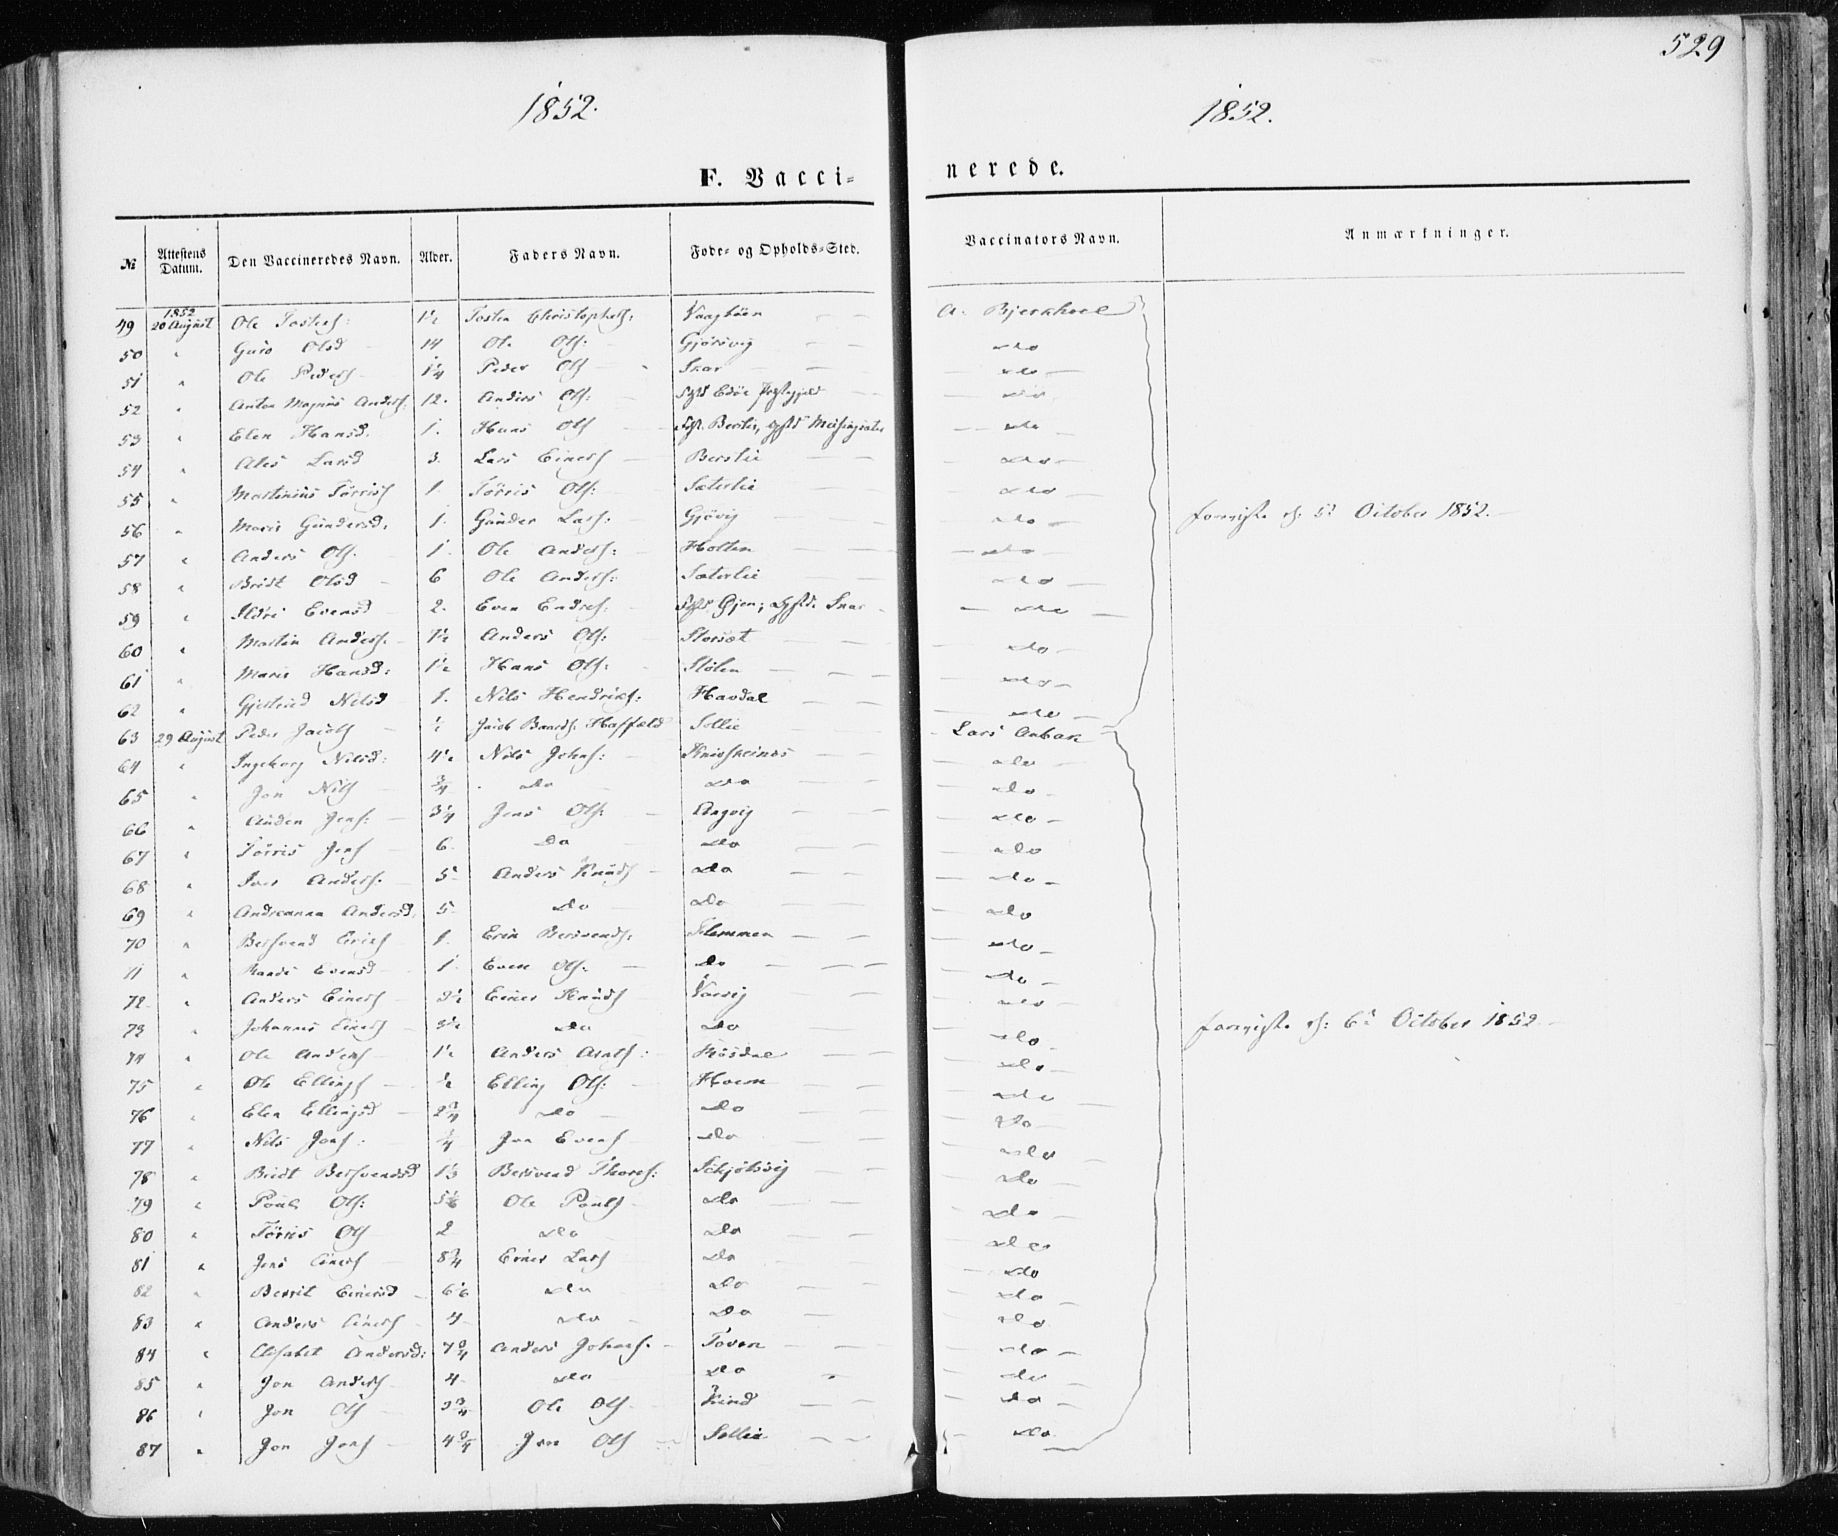 529
1852. 1852.
F. Vacci- nerede.
№ Attestens Datum. Den Vaccineredes Navn. Alder. Faders Navn. Føde- og Opholds-Sted. Vaccinators Navn. Anmærkninger.
1852
49 20 August Ole Tostens: 1½ Tosten Christophers: Vaagbøen A. Bjerkhoel
50 " Guro Olsd 14 Ole Ols: Gjørsvig do
51 " Ole Peders 1¼ Peder Ols Snar do
52 " Anton Magnus Anders: 12. Anders Ols: Edøe Præstegjeld do
53 " Elen Hansd. 1. Hans Ols do
54 " Ales Larsd 3. Lars Einers Berslie do
55 " Martinius Tørris 1. Tørris Ols: Sæterlie do
56 " Marit Gundersd. 1. Gunder Lars: Gjøvig do foreviste 5te October 1852.
57 " Anders Ols: 1. Ole Anders: Holten do
58 " Bridt Olsd 6 Ole Anders: Sæterlie do
59 " Ildri Evensd 2. Even Endres: Øjen; Snar do
60 " Martin Anders. 7½ Anders Ols: Storset do
61 " Marit Hansd: 1½ Hans Ols: Stølen do
62 " Gjertrud Nilsd 1. Nils Hendriks: Havdal do
63 29 August Peder Jacobs ½ Jacob Baards: Haffæld Sollie Lars Aubak
64 " Ingeborg Nilsd: 4½ Nils Johns: do
65 " Jon Nils ¾ do do do
66 " Auden Jens: 3¼ Jens Ols: Angvig do
67 " Tørris Jens 6. do do do
68 " Iver Anders. 5 Anders Knuds do do
69 " Andreanna Andersd. 5. do do do
70 " Bersvend Erics 1. Eric Bersvends: Slemmen do
71 " Randi Evensd 1. Even Ols: do do
72 " Anders Einers 3½ Einer Knuds Vaavig do
73 " Johannes Einers do do do foreviste 6te October 1852.
74 " Ole Anders 1½ Anders Arnts: Rosdal do
75 " Ole Ellings ½ Elling Ols: Hoem do
76 " Elen Ellingsd 2¾ do do do
77 " Nils Jons: ¾ Jon Evens do do
78 " Bridt Bersvendsd 1⅓ Bersvend Thores: Schjølsvig do
79 " Poul Ols: 5⅙ Ole Pouls do do
80 " Tørris Ols 2 do do do
81 " Jens Einers 8¾ Einer Lars do do
82 " Berrit Einersd 6⅙ do do do
83 " Anders Einers 4 do do do
84 " Elisabet Andersd: 7¾ Anders Johns. Toven do
85 " Jon Anders 4 do do do
86 " Jon Ols 3¾ Ole Ols do
87 " Jon Jons 4¾ Jon Ols Sollie do